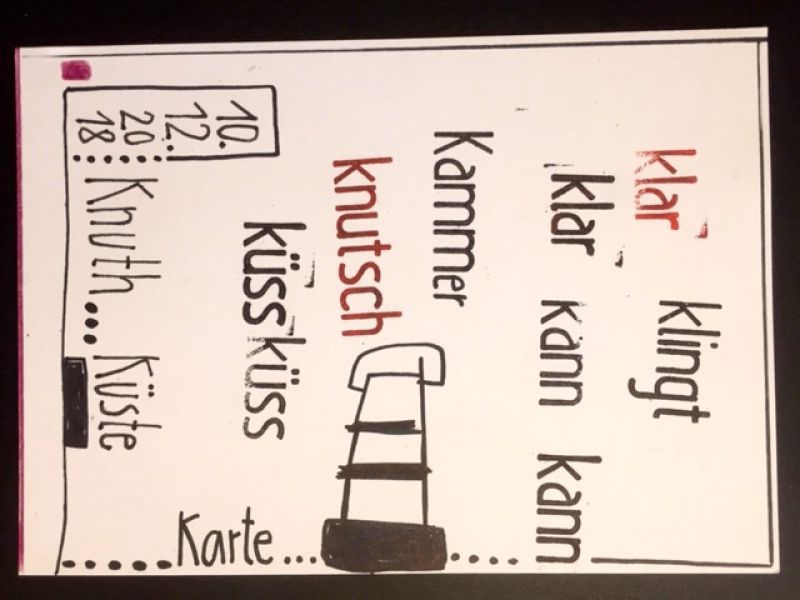 klar klingt
klar kann kann
Kammer
knutsch
küss küss
10.
12.
20
18
Knuth... Küste
Karte...